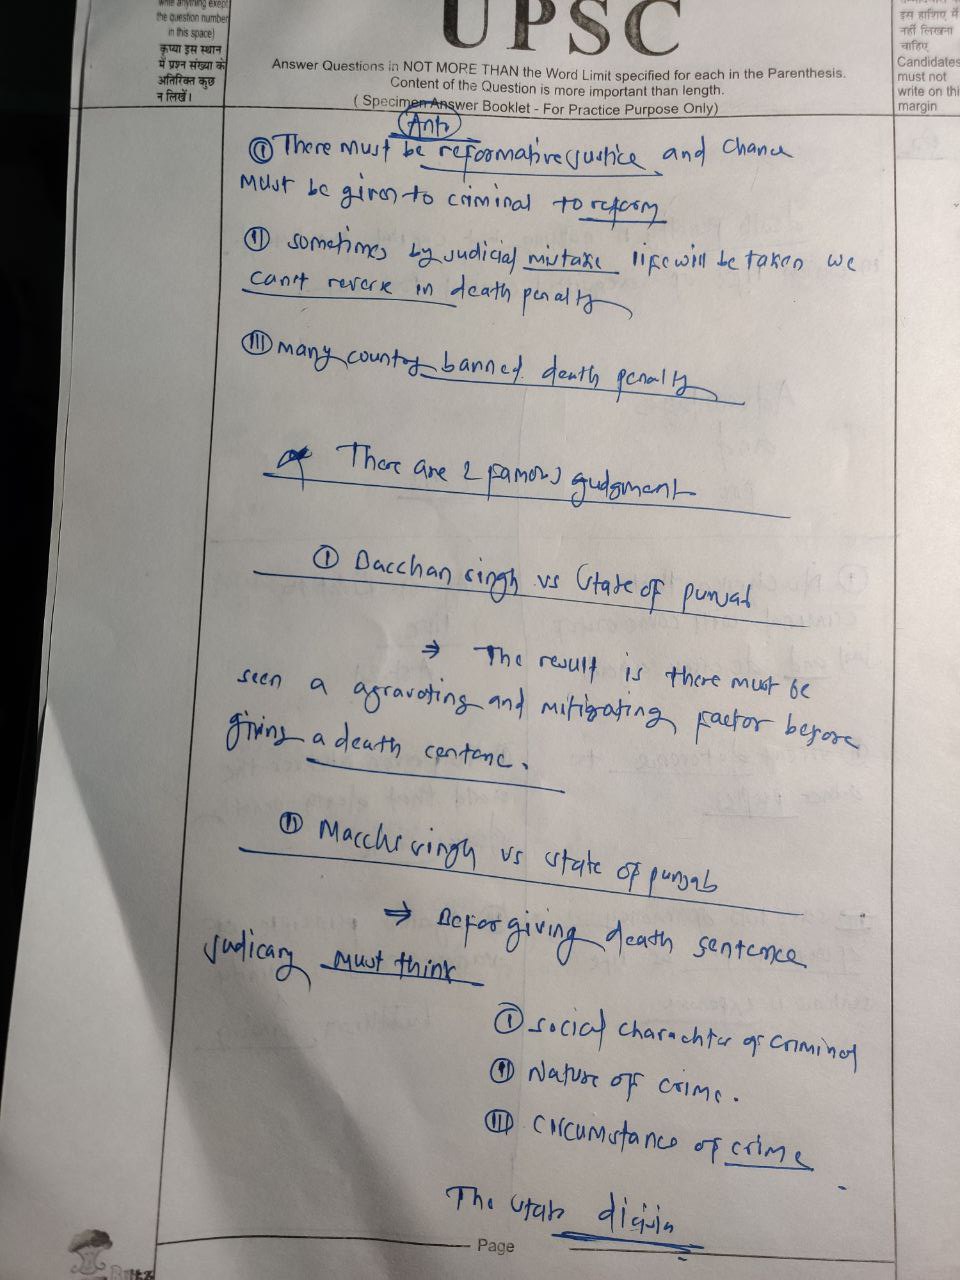 write anything exept
the question number
in this space)
कृप्या इस स्थान
में प्रश्न संख्या के
अतिरिक्त कुछ
न लिखें।
UPSC
Answer Questions in NOT MORE THAN the Word Limit specified for each in the Parenthesis.
Content of the Question is more important than length.
( Specimen Answer Booklet - For Practice Purpose Only)
इस हाशिए में
नहीं लिखना
चाहिए
Candidates
must not
write on thi
margin
Anti
I There must be reformative justice and chance
Must be given to criminal to reform
II sometimes by judicial mistake life will be taken we
can't reverse in death penalty
III many country banned death penalty
There are 2 famous gudgment
I Bacchan singh vs State of punjab
⇒ The result is there must be
seen a agravating and mitigating factor before
giving a death centenc.
II Macchi singh vs state of punjab
⇒ Befor giving death sentence
judicary must think
I social charachter of criminal
II Nature of crime.
III circumstance of crime
The
Page